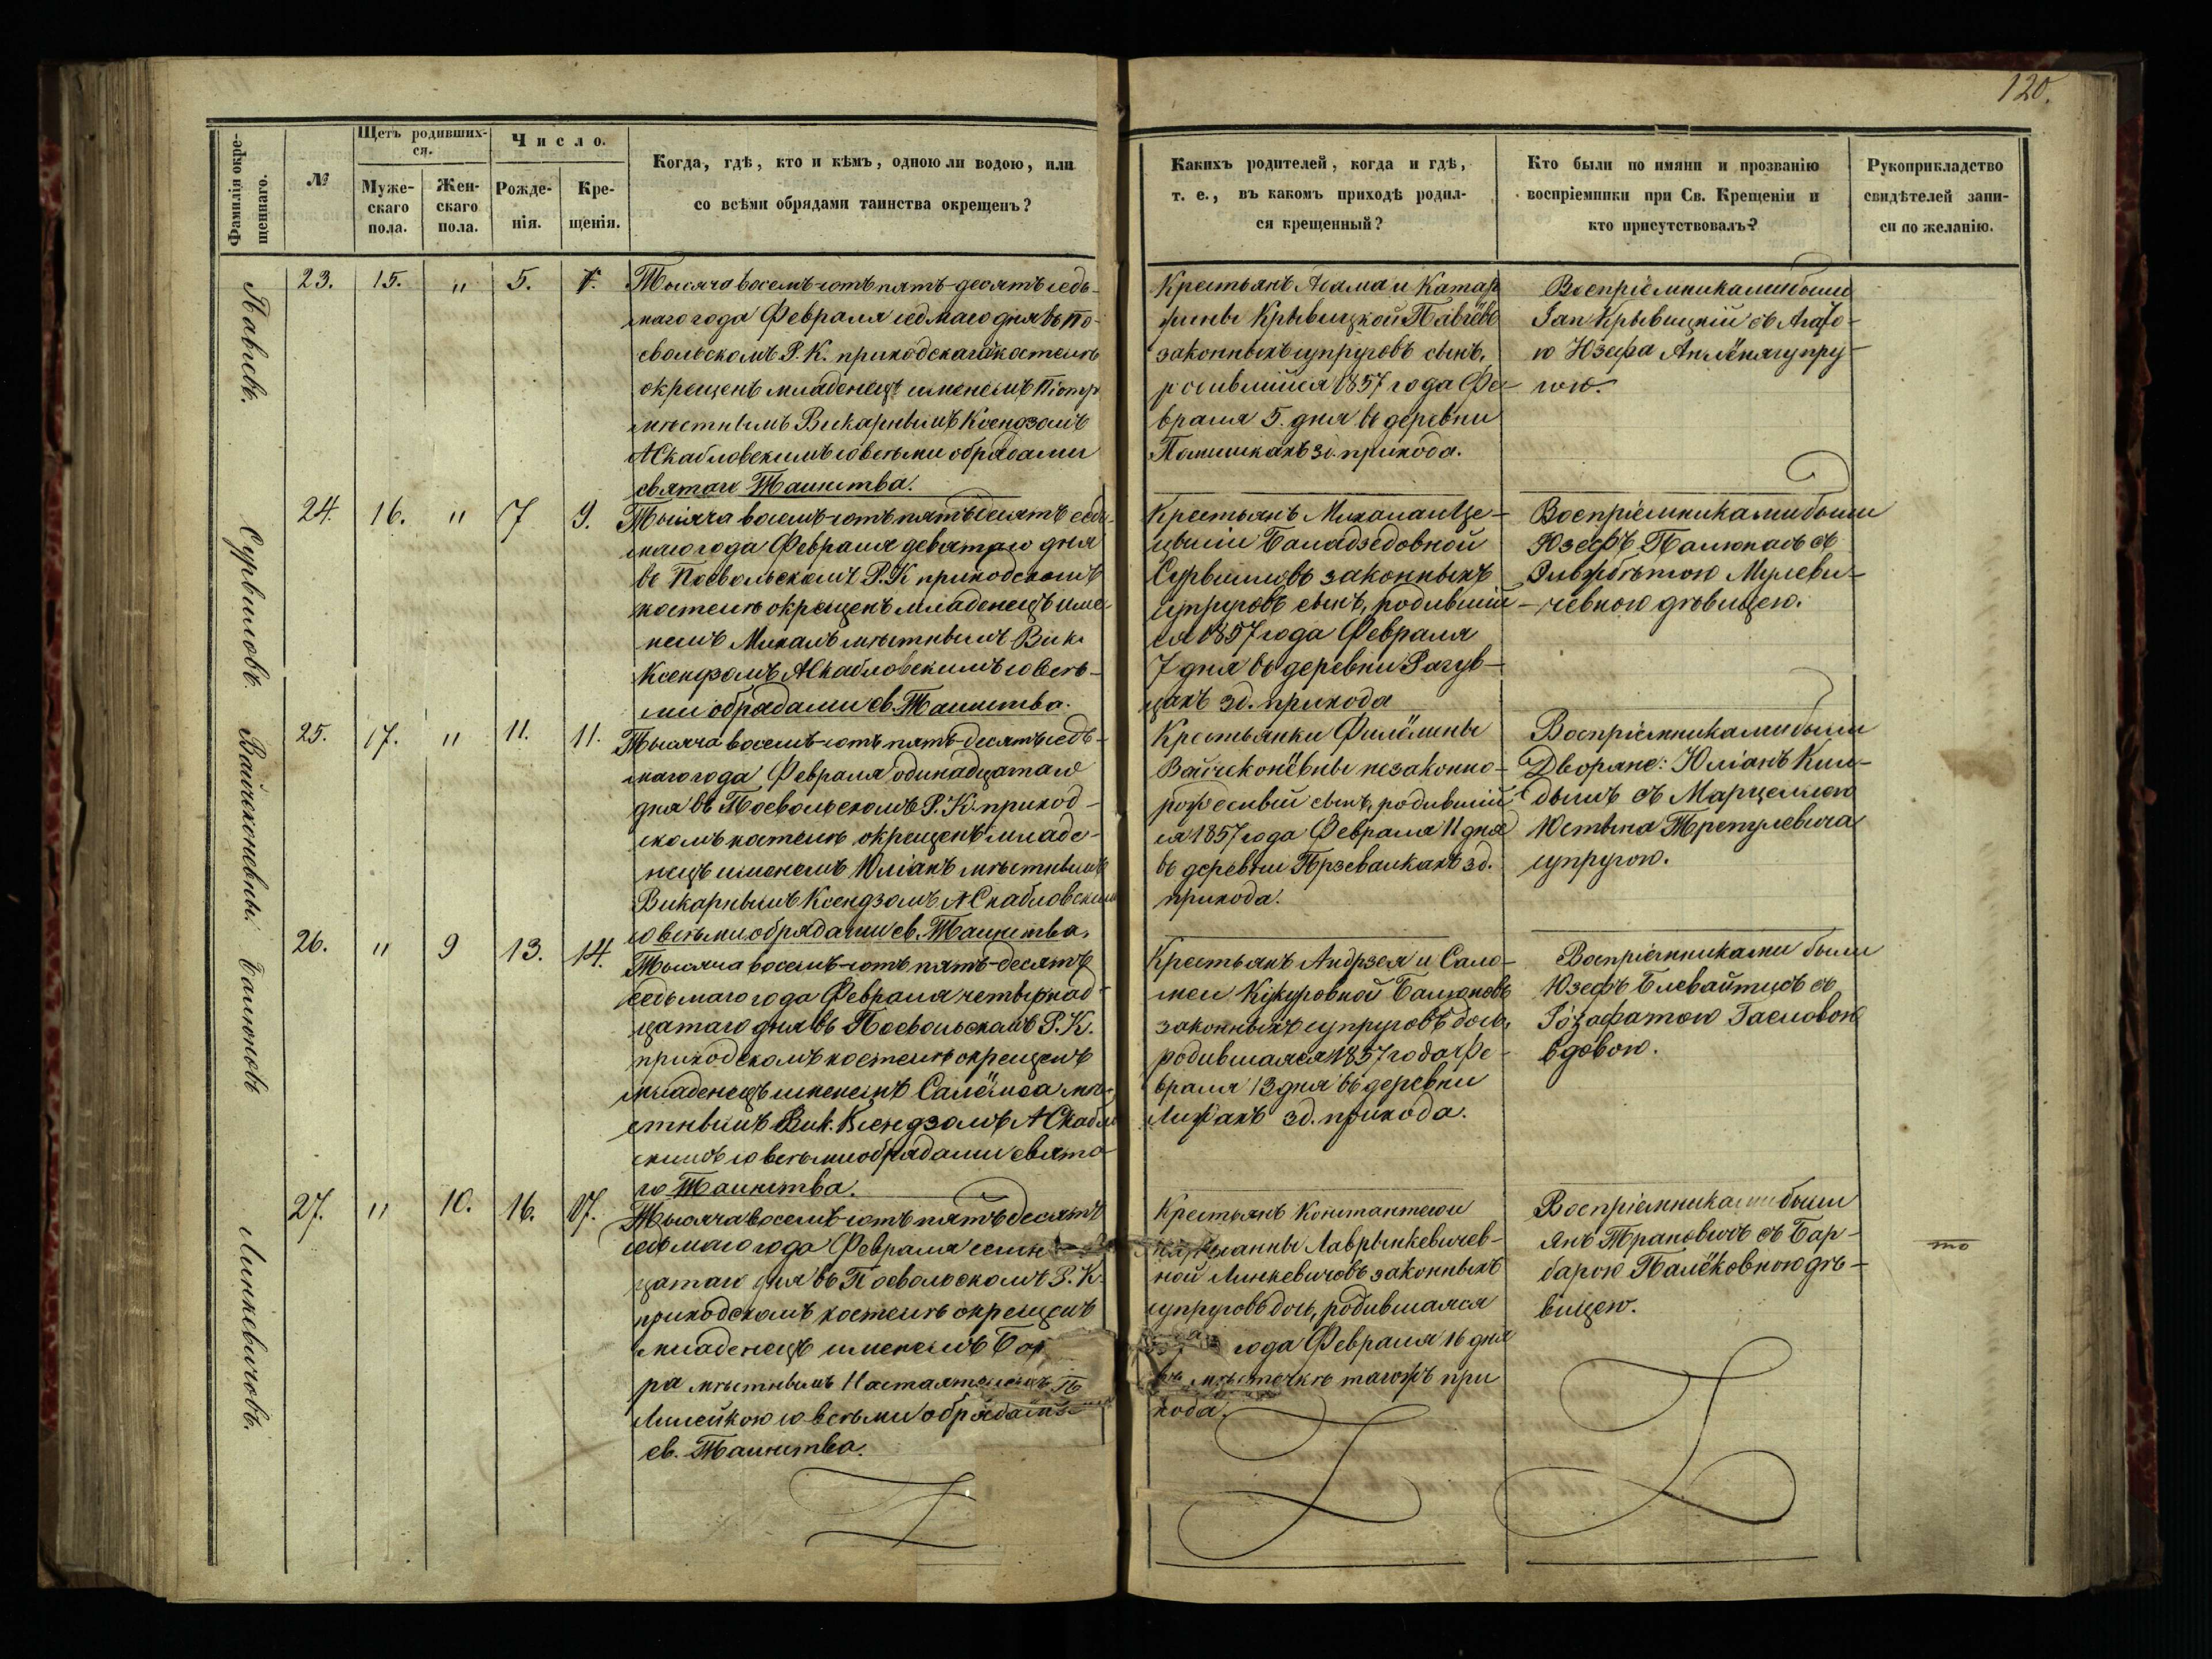 120.
Фамилія окре-
щеннаго.
№
Щетъ родивших-
ся.
Муже-
скаго
пола.
Жен-
скаго
пола.
Число.
Рожде-
нія.
Кре-
щенія.
Когда, гдѣ, кто и кѣмъ, одною ли водою, или
со всѣми обрядами таинства окрещенъ?
Какихъ родителей, когда и гдѣ,
т. е., въ какомъ приходѣ родил-
ся крещенный?
Кто были по имяни и прозванію
воспріемники при Св. Крещеніи и
кто присутствовалъ?
Рукоприкладство
свидѣтелей запи-
си по желанію.
23. 15. " 5.
Тысяча восемь-сотъ пять-десятъ седь-
маго года Февраля седмаго дня въ По-
свольскомъ Р. К. приходскага костелѣ
окрещенъ младенецъ именемъ Піотръ
мѣстнымъ Викарнымъ Ксендзомъ
А Скабловскимъ со всѣми обрядами
святаго Таинства.
Крестьянъ Адама и Катар
жины Крывицкой
законныхъ супруговъ сынъ,
родившійся 1857 года Фе-
враля 5. дня въ деревни
зд. прихода.
Воспріемниками были
Іан Крывицкій съ
ю Юзефа супру-
гою.
24. 16. " 7 9.
Сурвиловъ.
Тысяча восемь-сотъ пятьдесятъ седь-
маго года Февраля девятаго дня
въ Посвольскомъ Р. К приходскомъ
костелѣ окрещенъ младенецъ име-
немъ Михалъ мѣстнымъ Вик.
Ксендзомъ А Скабловскимъ со всѣ-
ми обрядами св. Таинства.
Крестьянъ Михала и Це-
циліи
Сурвиловъ законныхъ
супруговъ сынъ, родившій-
ся 1857 года Февраля
7 дня въ деревни
зд. прихода
Воспріемниками были
Юзефъ съ
Эльжбѣтою Мулеви-
чевною дѣвицею.
25. 17. " 11. 11.
Тысяча восемь-сотъ пять-десятъ седь-
маго года Февраля одинадцатаго
дня въ Посвольскомъ Р. К. приход-
скомъ костелѣ окрещенъ младе-
нецъ именемъ Юліанъ мѣстнымъ
Викарнымъ Ксендзомъ А Скабловским
со всѣми обрядами св. Таинства.
Крестьянки Филёмены
незаконно-
рожденный сынъ, родившій-
ся 1857 года Февраля 11 дня
въ деревни Прзевалкахъ зд.
прихода.
Воспріемниками были
Дворяне: Юліанъ
съ Марцеллою
Юстына Трепулевича
супругою.
26. " 9 13. 14.
Балюновъ
Тысяча восемь-сотъ пять-десятъ
седьмаго года Февраля четырнад-
цатаго дня въ Посвольскомъ Р. К.
приходскомъ костелѣ окрещенъ
младенецъ именемъ Салёмеа мѣ-
стнымъ Вик. Ксендзомъ А Скабло
скимъ со всѣми обрядами свята-
го Таинства.
Крестьянъ Андрзея и Сало-
меи Кукуровной Балюновъ
законныхъ супруговъ дочь,
родившаяся 1857 года Фе-
враля 13 дня въ деревни
зд. прихода.
Воспріемниками были
Юзефъ съ
Іозафатою
вдовою.
27. " 10. 16. 17.
Линкевичовъ.
Тысяча восемь-сотъ пять-десятъ
седьмаго года Февраля семн
цатаго дня въ Посвольскомъ Р. К.
приходскомъ костелѣ окрещенъ
младенецъ именемъ Бар
ра мѣстнымъ Настаятелемъ
со всѣми обрядами
св. Таинства.
Крестьянъ Константего и
Лаврынкевичев-
ной Линкевичовъ законныхъ
супруговъ дочь, родившаяся
года Февраля 16 дня
въ мѣстечкѣ тагожъ при
хода.
Воспріемниками были
Янъ съ Бар-
барою дѣ-
вицею.
то